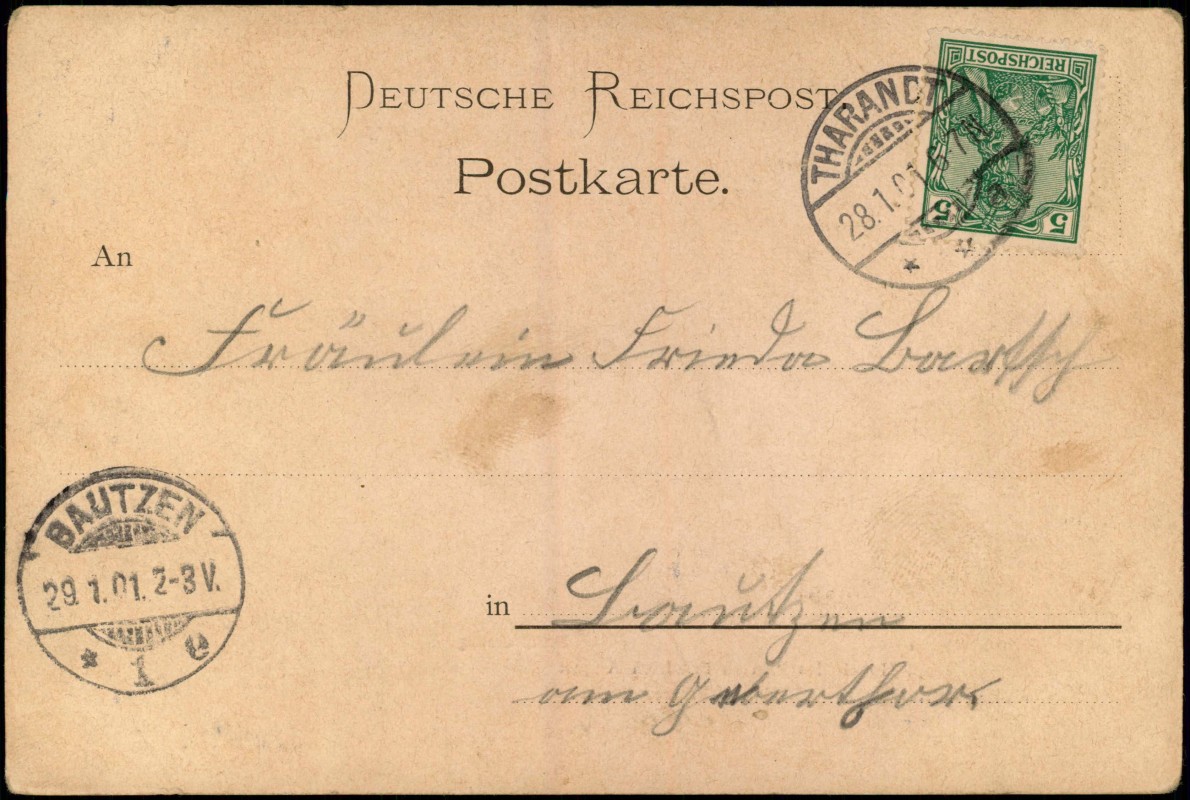 DEUTSCHE REICHSPOST.
Postkarte.
REICHSPOST
5 5
THARANDT
28.1.01. 6-7N.
An
Fräulein Frieda Bartsch
BAUTZEN
29.1.01. 2-3V.
* 1 c
in Bautzen
am